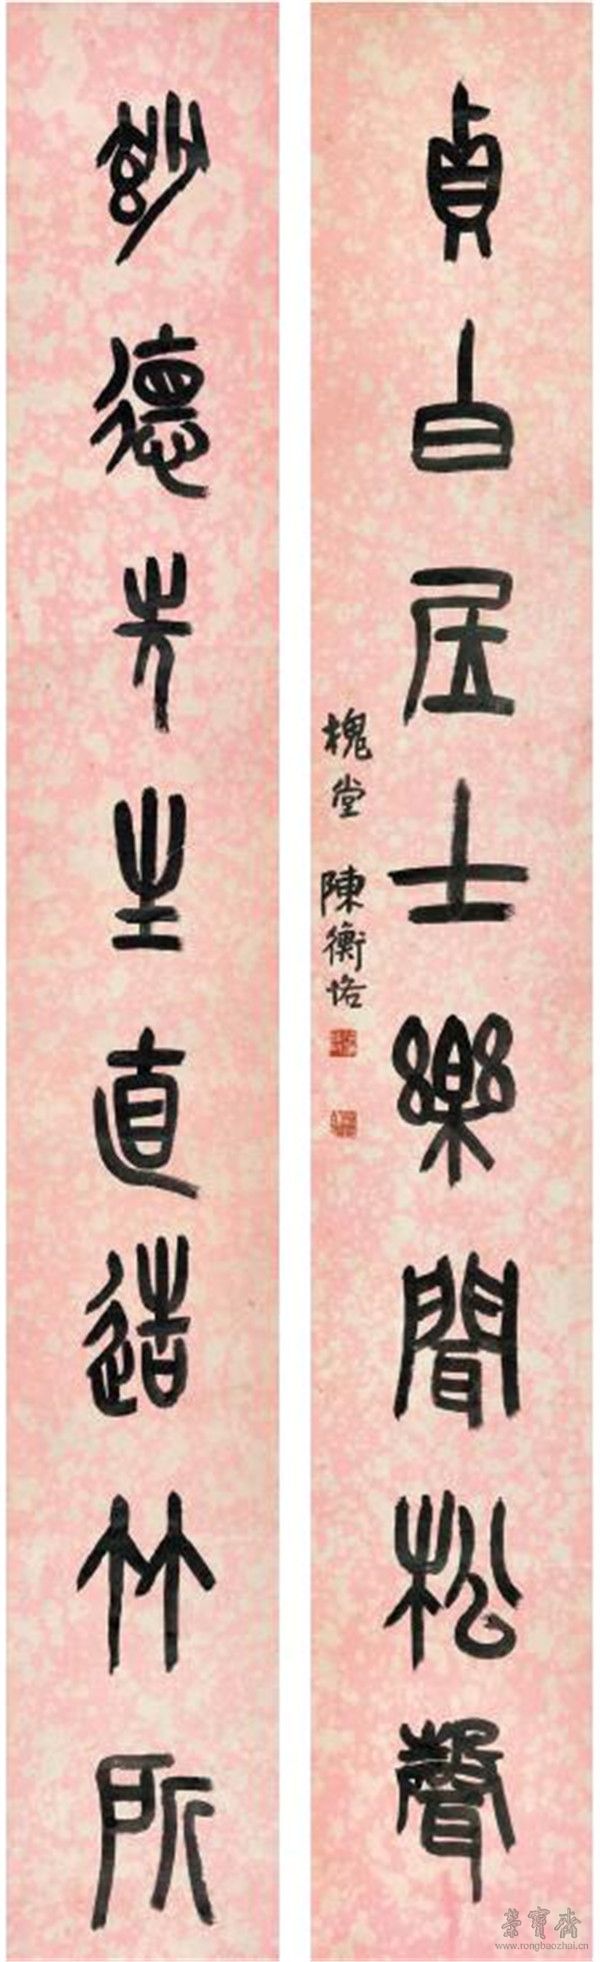 貞白居士樂聞松聲
妙德先生直造竹所
槐堂 陳衡恪
榮寶齋
www.rongbaozhai.cn